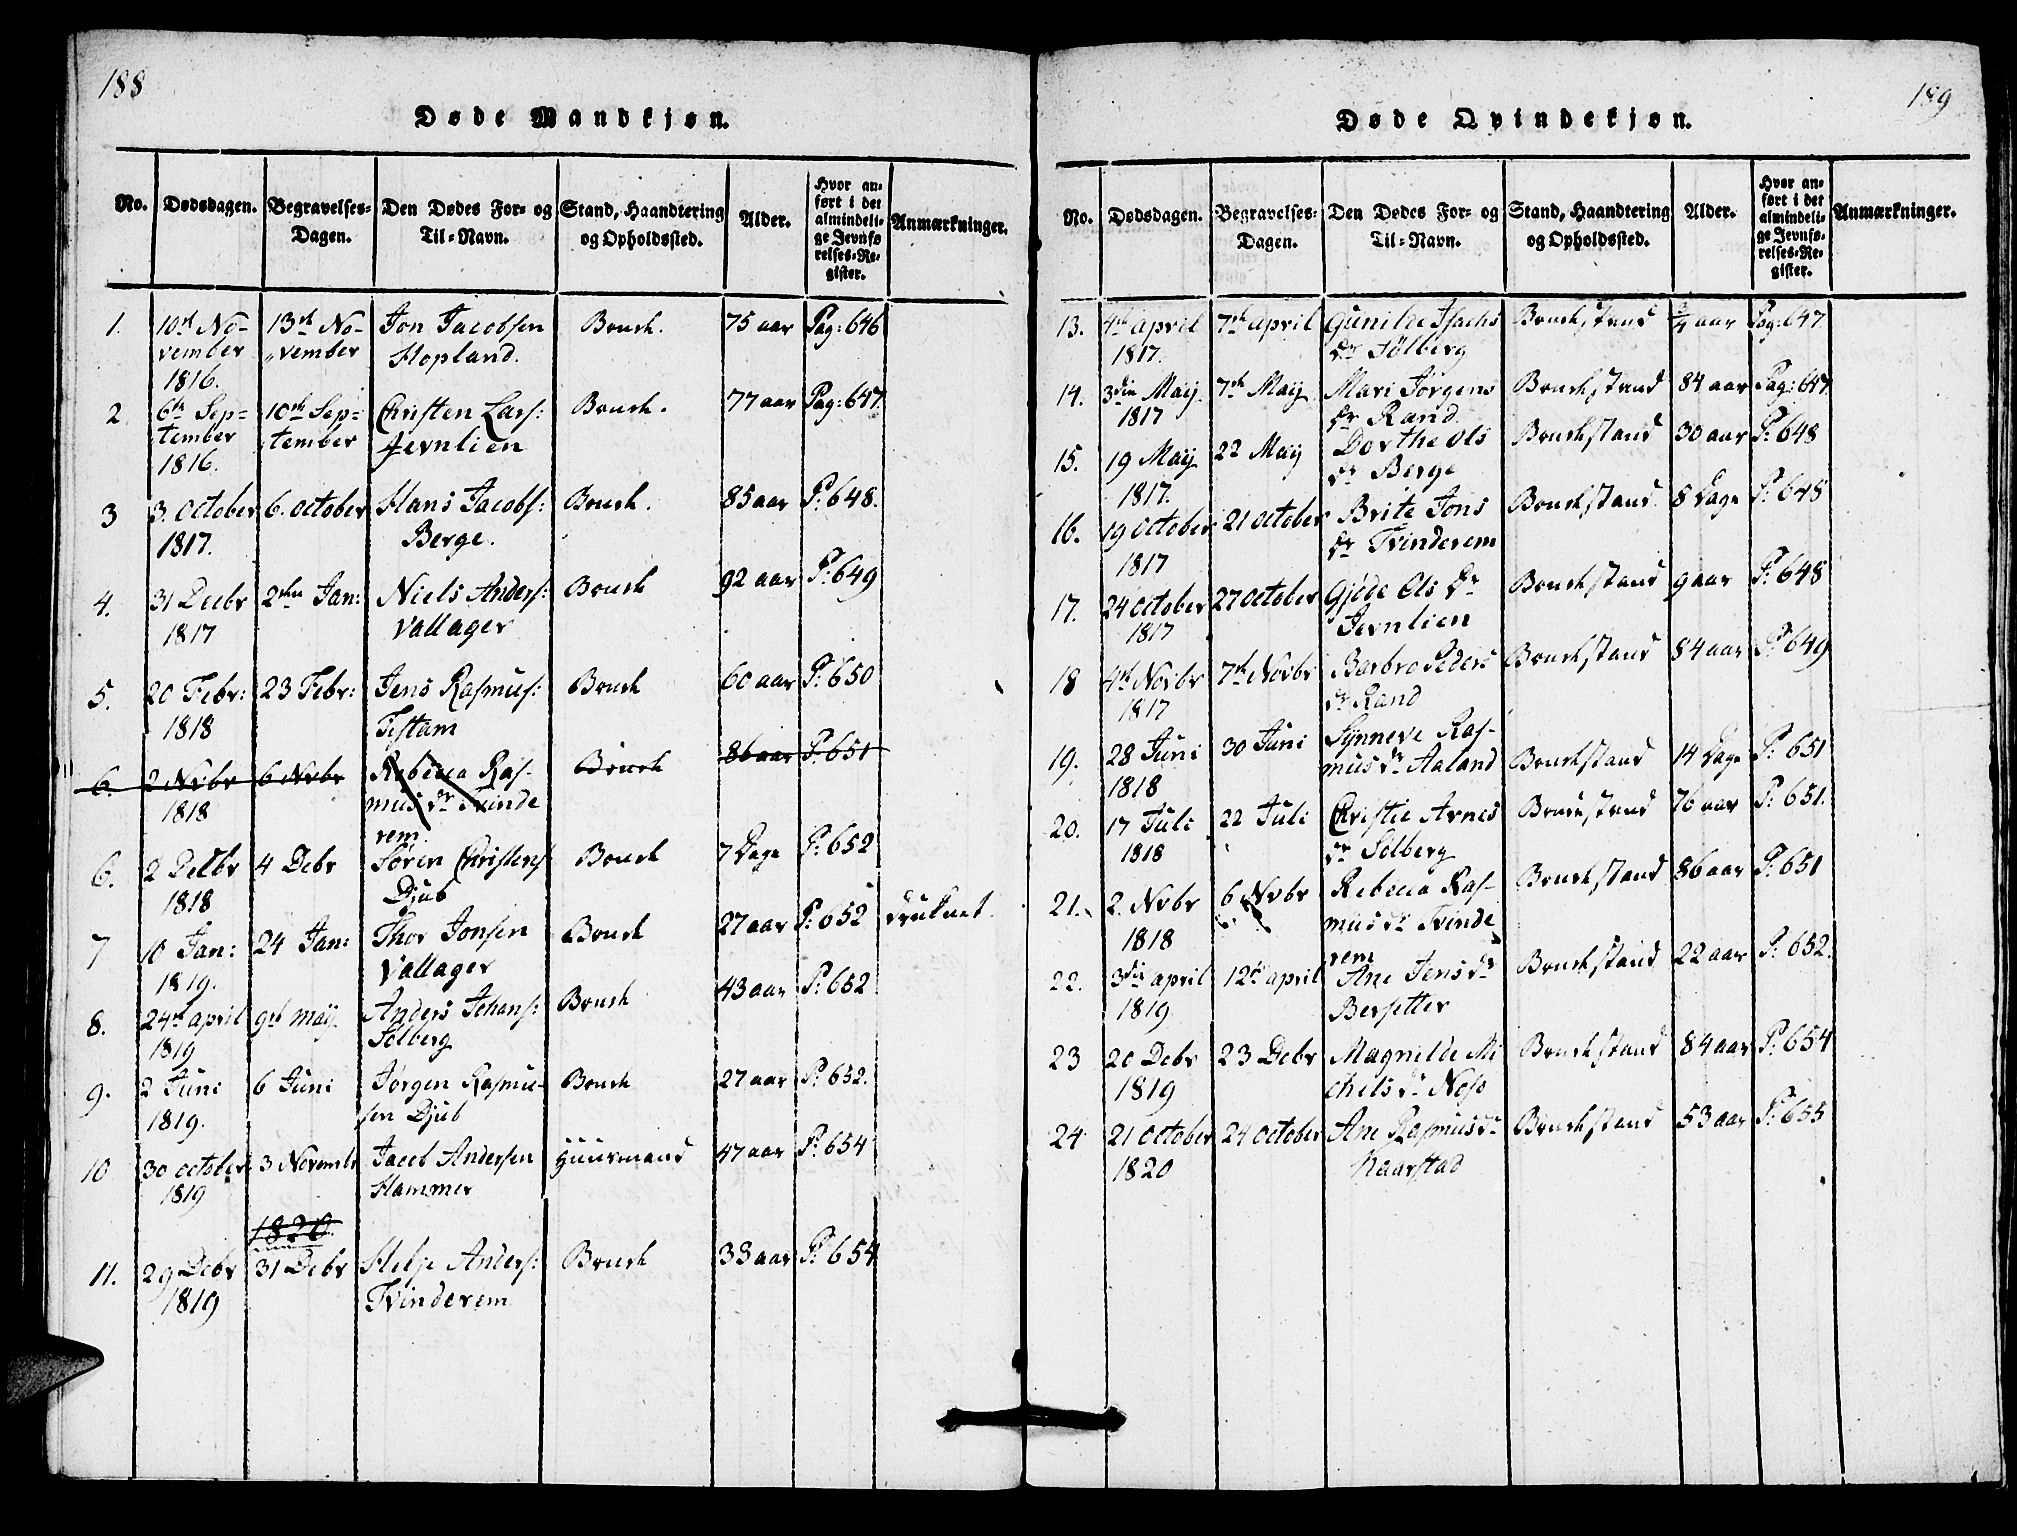 188
Døde Mandkjøn.
No. Dødsdagen. Begravelses-Dagen. Den Dødes For- og Til-Navn. Stand, Haandtering og Opholdssted. Alder. Hvor anført i det almindelige Jevnførelses-Register. Anmærkninger.
1. 10de No- 13de No- Jon Jacobsen Bonde. 75 aar Pag: 646
vember vember Hopland.
1816.
2 6te Sep= 10de Sep= Christen Lars: Bonde. 77 aar Pag: 647
tember tember Jevnlien
1816.
3 3. October 6. October Hans Jacobs: Bonde. 85 aar P: 648.
1817. Berge.
4. 31 Decbr 2den Jan: Niels Anders: Bonde 92 aar P: 649
1817 Vallager
5. 20 Febr: 23 Febr: Jens Rasmus: Bonde 60 aar P: 650
1818 Testam
6. 2 Nvbr 6 Nvbr Rebecca Ras- Bonde 86 aar P: 651
1818 mus dr Tvinde
rem
6. 2 Decbr 4 Debr Søren Christens Bonde 7 Dage P: 652
1818 Djub
7 10 Jan: 24 Jan: Thor Jonsen Bonde 27 aar P: 652 druknet.
1819. Vallager
8. 24de april 9de maij Anders Johans: Bonde 43 aar P: 652
1819 Solberg
9. 2 Juni 6 Juni Jørgen Rasmu- Bonde 27 aar P: 652.
1819. sen Djub
10 30 october 3 Novembr Jacob Andersen Huusmand 47 aar P: 654
1819 Hammer
1820
11. 29 Debr 31 Debr Helje Anders: Bonde 33 aar P: 654
1819 Tvinderem
189
Døde Qvindekjøn.
No. Dødsdagen. Begravelses-Dagen. Den Dødes For- og Til-Navn. Stand, Haandtering og Opholdssted. Alder. Hvor anført i det almindelige Jevnførelses-Register. Anmærkninger.
13. 4de april 7de april Gunilde Isachs Bondestand 3/4 aar Pag: 647
1817. dr Sølberg
14. 3die Maij 7de Maij Mari Jørgens Bondestand 84 aar Pag: 647
1817 dr Rand
15. 19 Maij 22 Maij Dorthe Ols Bondestand 30 aar P: 648
1817. dr Berge
16. 19 October 21 october Brite Jons Bondestand 8 Dage P: 648
1817 dr Tvinderem
17. 24 October 27 October Gjøde Ols dr Bondestand 9 aar P: 648
1817 Jevnlien
18 4de Novbr 7de Novbr Barbro Peders Bondestand 84 aar P: 649
1817 dr Rand
19. 28 Juni 30 Juni Synneve Ras- Bondestand 14 Dage P: 651
1818 mus dr Aaland
20. 17 Juli 22 Juli Christie Arnes Bondestand 76 aar P: 651.
1818 dr Sølberg
21. 2. Nvbr 6 Nvbr Rebecca Ras- Bondestand 86 aar P: 651
1818 mus dr Tvinde
rem
22. 3die april 12te april Ane Jens dr Bondestand 22 aar P: 652.
1819 Bersetter
23 20 Debr 23 Debr Magnilde Mi Bondestand 84 aar P: 654
1819 chels dr Nose
24 21 October 24 october Ane Rasmus dr Bondestand 53 aar P: 655
1820 Kaarstad